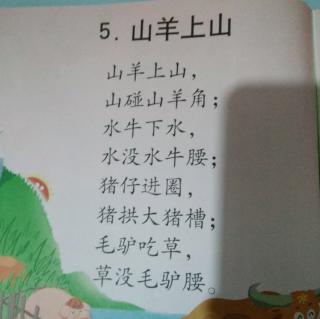 5. 山羊上山
山羊上山，
山碰山羊角；
水牛下水，
水没水牛腰；
猪仔进圈，
猪拱大猪槽；
毛驴吃草，
草没毛驴腰。